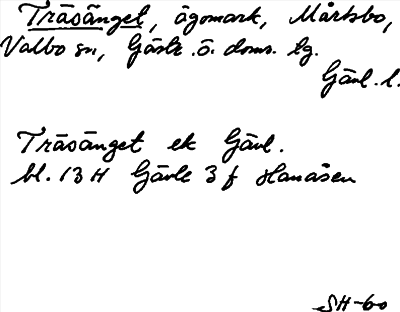 Träsänget, ägomark, Mårtsbo,
Valbo sn, Gästr. ö. doms. tg.
Gävl. l.
Träsänget ek Gävl.
bl. 13 H Gävle 3 f Hanåsen
SH-60